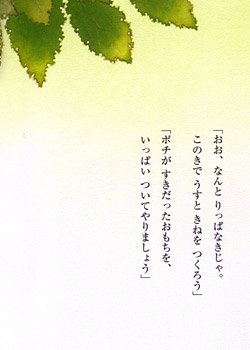 「おお、なんと りっぱなきじゃ。
このきで うすと きねを つくろう」
「ポチが すきだったおもちを、
いっぱい ついてやりましょう」